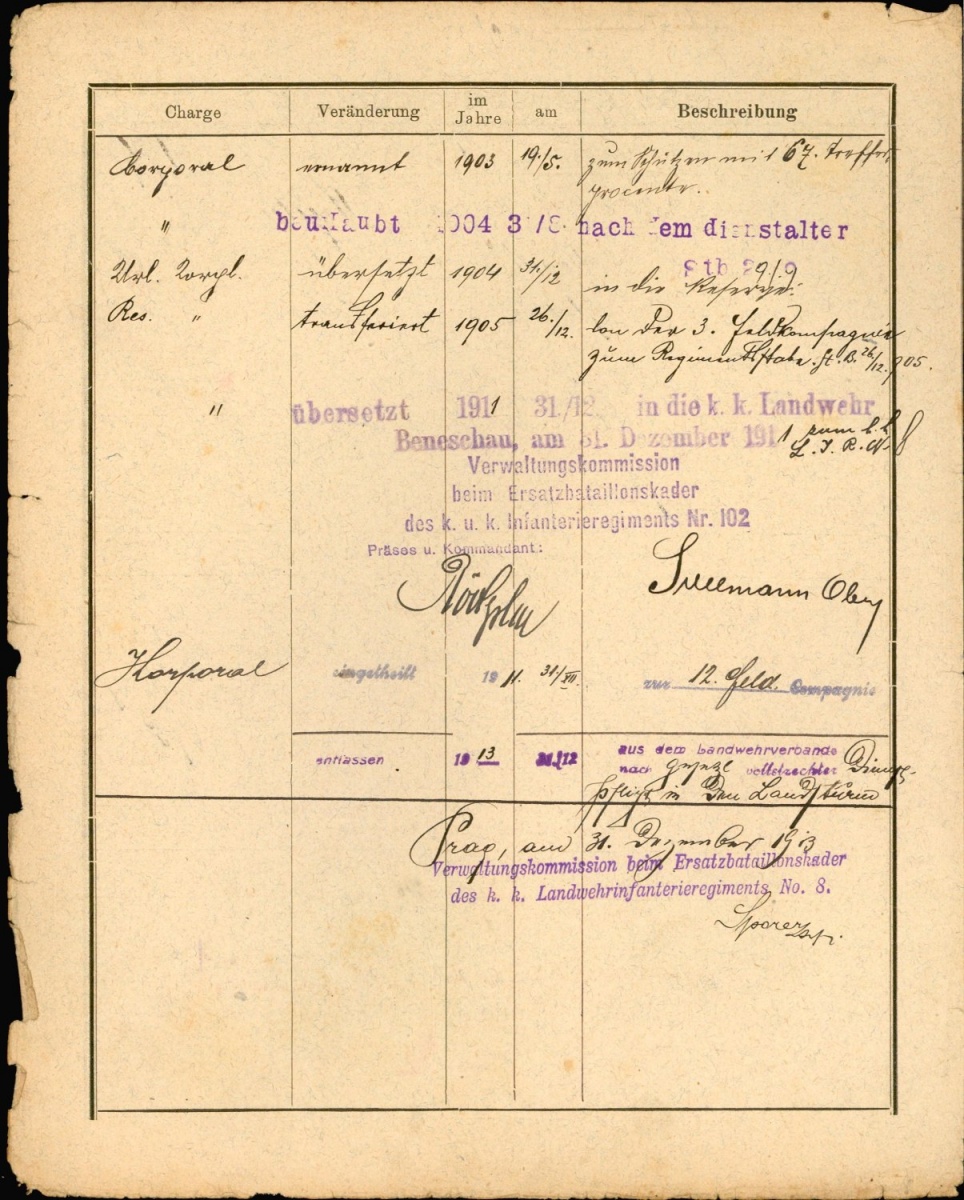 Charge Veränderung im Jahre am Beschreibung
Corporal ernannt 1903 19./5. zum Schützen mit 67. Treffer-
procente.
" beurlaubt 1904 31/8 nach dem dienstalter
Stb
Url. Corpl. übersetzt 1904 31./12 in die Reserve.
Res. " transferiert 1905 26./12. von der 3. Feldkompagnie
zum Regimentsstabe. St. B. 26/12. 905.
" übersetzt 1911 31./12. in die k. k. Landwehr
Beneschau, am 31. Dezember 1911 zum k. k.
L. I. R. N. 8
Verwaltungskommission
beim Ersatzbataillonskader
des k. u. k. Infanterieregiments Nr. 102
Präses u. Kommandant:
Korporal eingetheilt 1911. 31./XII. zur 12. Feld. Compagnie
entlassen 1913 31./12 aus dem Landwehrverbande
nach gesetzl vollstreckter Dienst-
pflicht in den Landsturm
Prag, am 31. Dezember 1913
Verwaltungskommission beim Ersatzbataillonskader
des k. k. Landwehrinfanterieregiments No. 8.